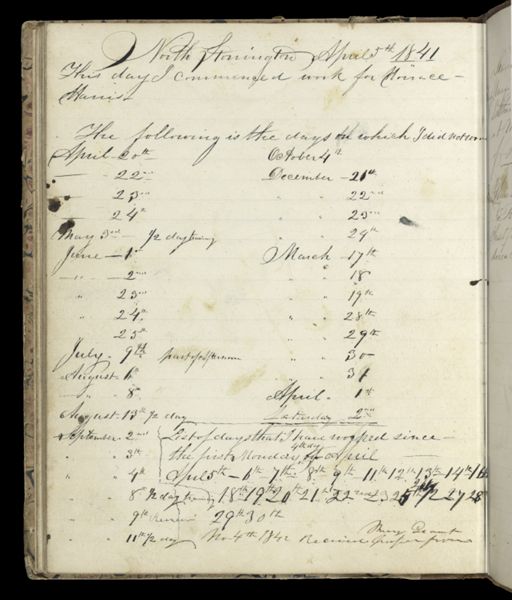 North Stonington April 5th 1841
This day I commenced work for Horace
Harris
The following is the days on which I did not work
April 20th
22nd
23rd
24th
May 3rd 1/2 day
June 1st
" 2nd
" 23rd
" 24th
" 25th
July 9th part of
August 6th
" 8th
August 13th 1/2 day
September 2nd
" 3th
" 4th
" 8 1/2 day
" 9th
" 11th 1/2 day
October 4th
December 21st
" " 22nd
" " 23rd
" " 29th
March 17th
" " 18
" " 19th
" " 28th
" " 29th
" " 30
" " 31
April 1st
Saturday 2nd
List of days that I have worked since
the first Monday 4th day of April
April 5th 6th 7th 8th 9th 11th 12th 13th 14th 16th
18th 19th 20th 21st 22nd 23 25th 27 28
29th 30th
Nov 4th 1842 Received